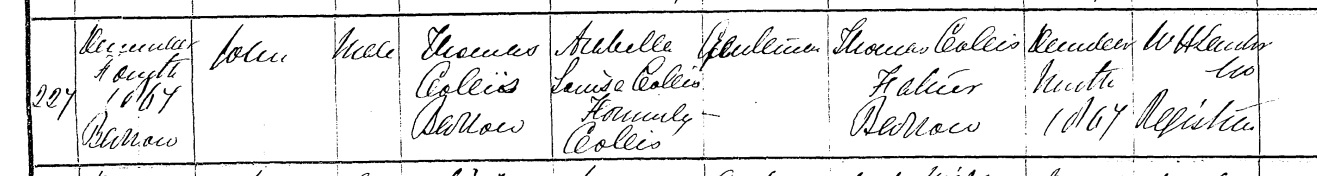 227
December
Fourth
1867
Barrow
John
Male
Thomas
Collis
Barrow
Arabella
Louisa Collis
Formerly
Collis
Gentleman
Thomas Collis
Father
Barrow
December
Ninth
1867
Registrar